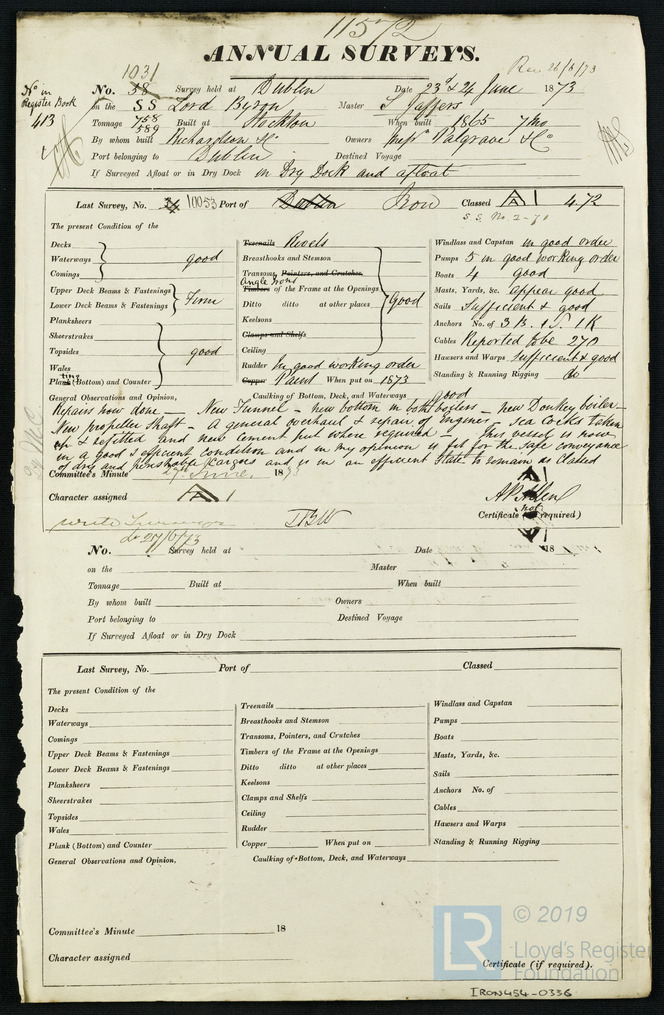 11572
ANNUAL SURVEYS.
Rec 26/6/73
1031
No. 38 Survey held at Dublin Date 23d & 24 June 1873
No in Register Book 413
on the SS Lord Byron Master S Jaggers
Tonnage 758 589 Built at Stockton When built 1865 7 mo
By whom built Richardson & Co Owners Messrs Palgrave & Co
Port belonging to Dublin Destined Voyage
If Surveyed Afloat or in Dry Dock in Dry Dock and afloat
Last Survey, No. 10053 Port of Iron Classed A 1 4.72
S.S. No. 2-70
The present Condition of the
Decks
Waterways good
Comings
Upper Deck Beams & Fastenings
Lower Deck Beams & Fastenings Firm
Planksheers
Sheerstrakes
Topsides good
Wales
Plating (Bottom) and Counter
Treenails Rivets
Breasthooks and Stemson
Transoms, Pointers, and Crutches
Angle Irons
Timbers of the Frame at the Openings
Ditto ditto at other places Good
Keelsons
Clamps and Shelfs
Ceiling
Rudder In good working order
Copper Paint When put on 1873
Windlass and Capstan in good order
Pumps 5 in good working order
Boats 4 good
Masts, Yards, &c. appear good
Sails Sufficient & good
Anchors No. of 3 B. 1 S. 1 K
Cables Reported to be 270
Hawsers and Warps Sufficient & good
Standing & Running Rigging Do
General Observations and Opinion, Caulking of Bottom, Deck, and Waterways good
Repairs now done — New Funnel — new bottom in both boilers — new Donkey boiler —
New propeller Shaft — A general overhaul & repair of Engines — Sea Cocks taken
up & refitted and new cement put where required — This vessel is now
in a good & efficient condition and in my opinion is fit for the safe conveyance
of dry and perishable Cargoes and is in an efficient State to remain as Classed
Committee's Minute 27th June 1873
Character assigned A 1
Certificate (not required)
27/6/73
No. Survey held at Date 18
on the Master
Tonnage Built at When built
By whom built Owners
Port belonging to Destined Voyage
If Surveyed Afloat or in Dry Dock
Last Survey, No. Port of Classed
The present Condition of the
Decks
Waterways
Comings
Upper Deck Beams & Fastenings
Lower Deck Beams & Fastenings
Planksheers
Sheerstrakes
Topsides
Wales
Plank (Bottom) and Counter
Treenails
Breasthooks and Stemson
Transoms, Pointers, and Crutches
Timbers of the Frame at the Openings
Ditto ditto at other places
Keelsons
Clamps and Shelfs
Ceiling
Rudder
Copper When put on
Windlass and Capstan
Pumps
Boats
Masts, Yards, &c.
Sails
Anchors No. of
Cables
Hawsers and Warps
Standing & Running Rigging
General Observations and Opinion, Caulking of Bottom, Deck, and Waterways
Committee's Minute 18
Character assigned
Certificate (if required).
LR © 2019
Lloyd's Register
Foundation
IRON454-0336